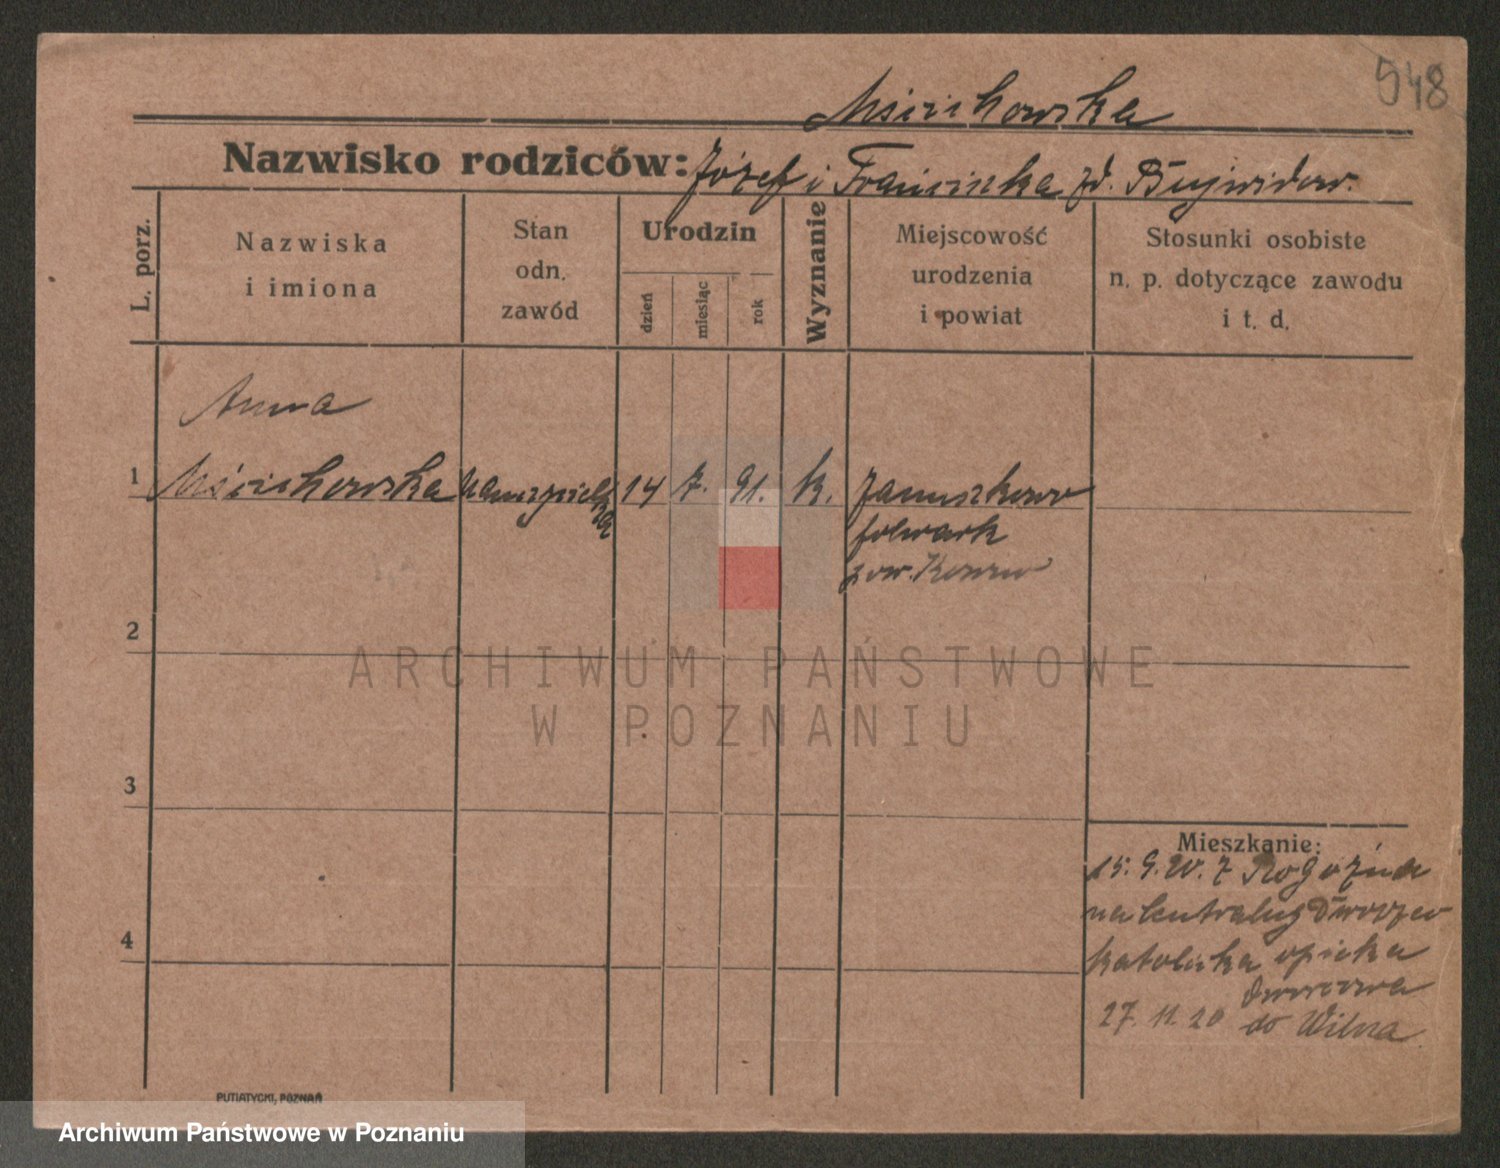 548
Mścichowska
Nazwisko rodziców: Józef i Franciszka zd. Bujwidow.
L. porz.
Nazwiska
i imiona
Stan
odn.
zawód
Urodzin
dzień
miesiąc
rok
Wyznanie
Miejscowość
urodzenia
i powiat
Stosunki osobiste
n. p. dotyczące zawodu
i t. d.
Anna
1 Mścichowska nauczycielka 14 7. 91. k. Januszkowo
folwark
pow.
2
3
4
Mieszkanie:
15. 9. 20. z Rogoźna
na Centralny Dworzec
katolicka opieka
dworcowa
27. 11. 20 do Wilna
PUTIATYCKI, POZNAŃ
ARCHIWUM PAŃSTWOWE
W POZNANIU
Archiwum Państwowe w Poznaniu